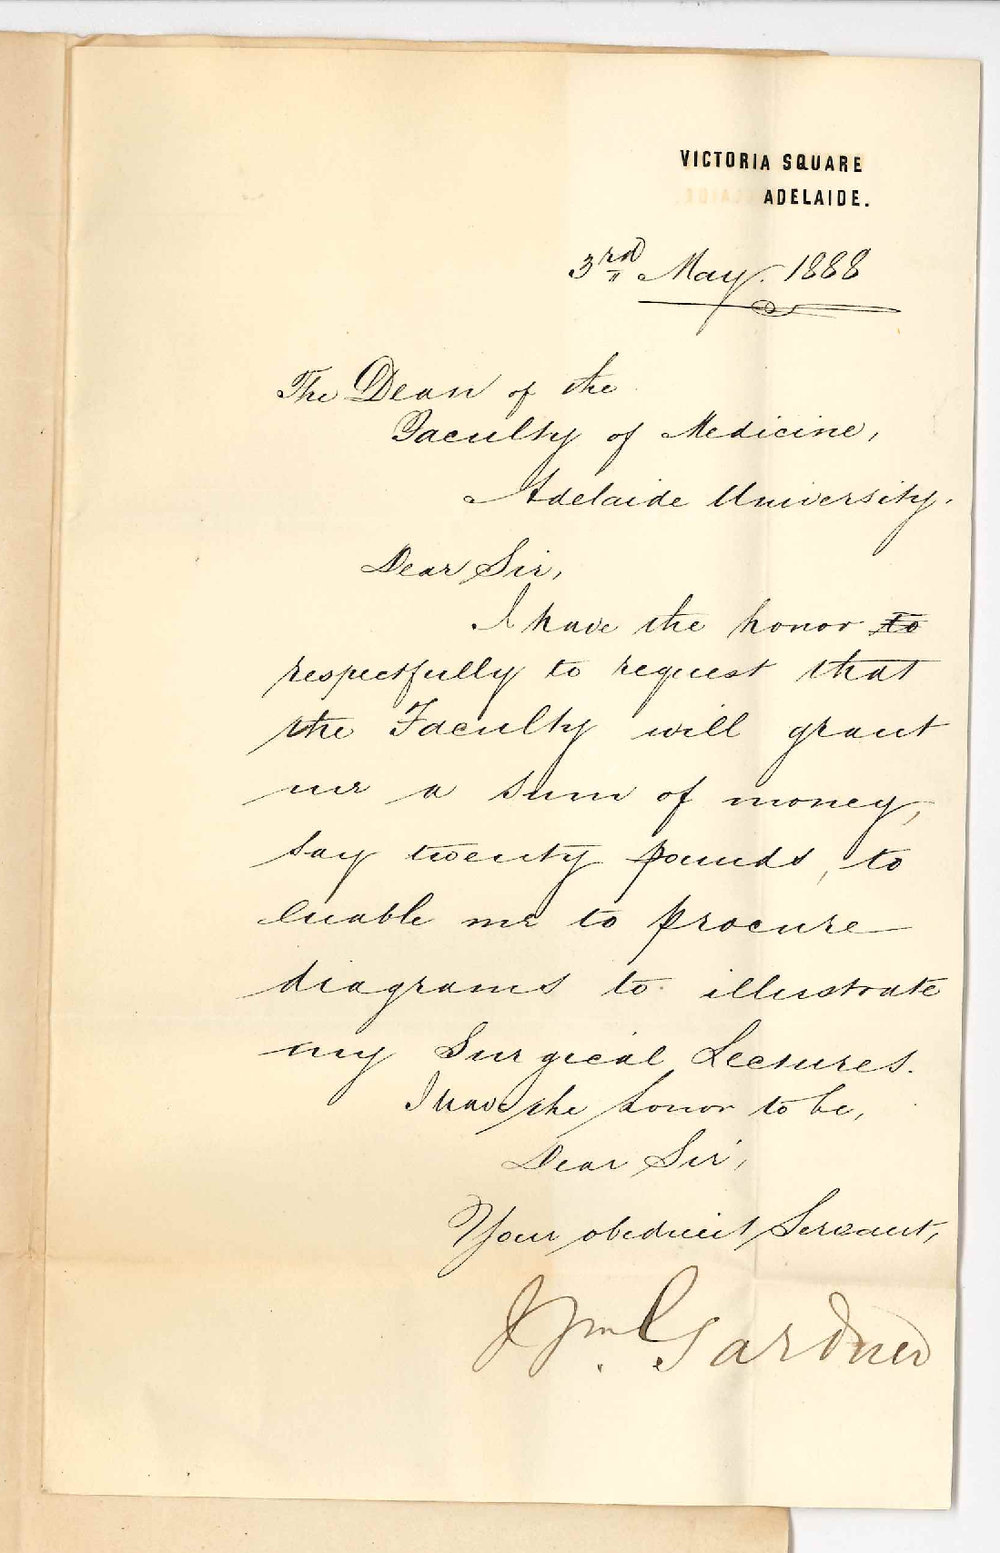 VICTORIA SQUARE
ADELAIDE.
3rd May. 1888
The Dean of the
Faculty of Medicine,
Adelaide University.
Dear Sir,
I have the honor to
respectfully to request that
the Faculty will grant
me a sum of money,
say twenty pounds, to
enable me to procure
diagrams to illustrate
my Surgical Lectures.
I have the honor to be,
Dear Sir,
Your obedient Servant,
Wm Gardner